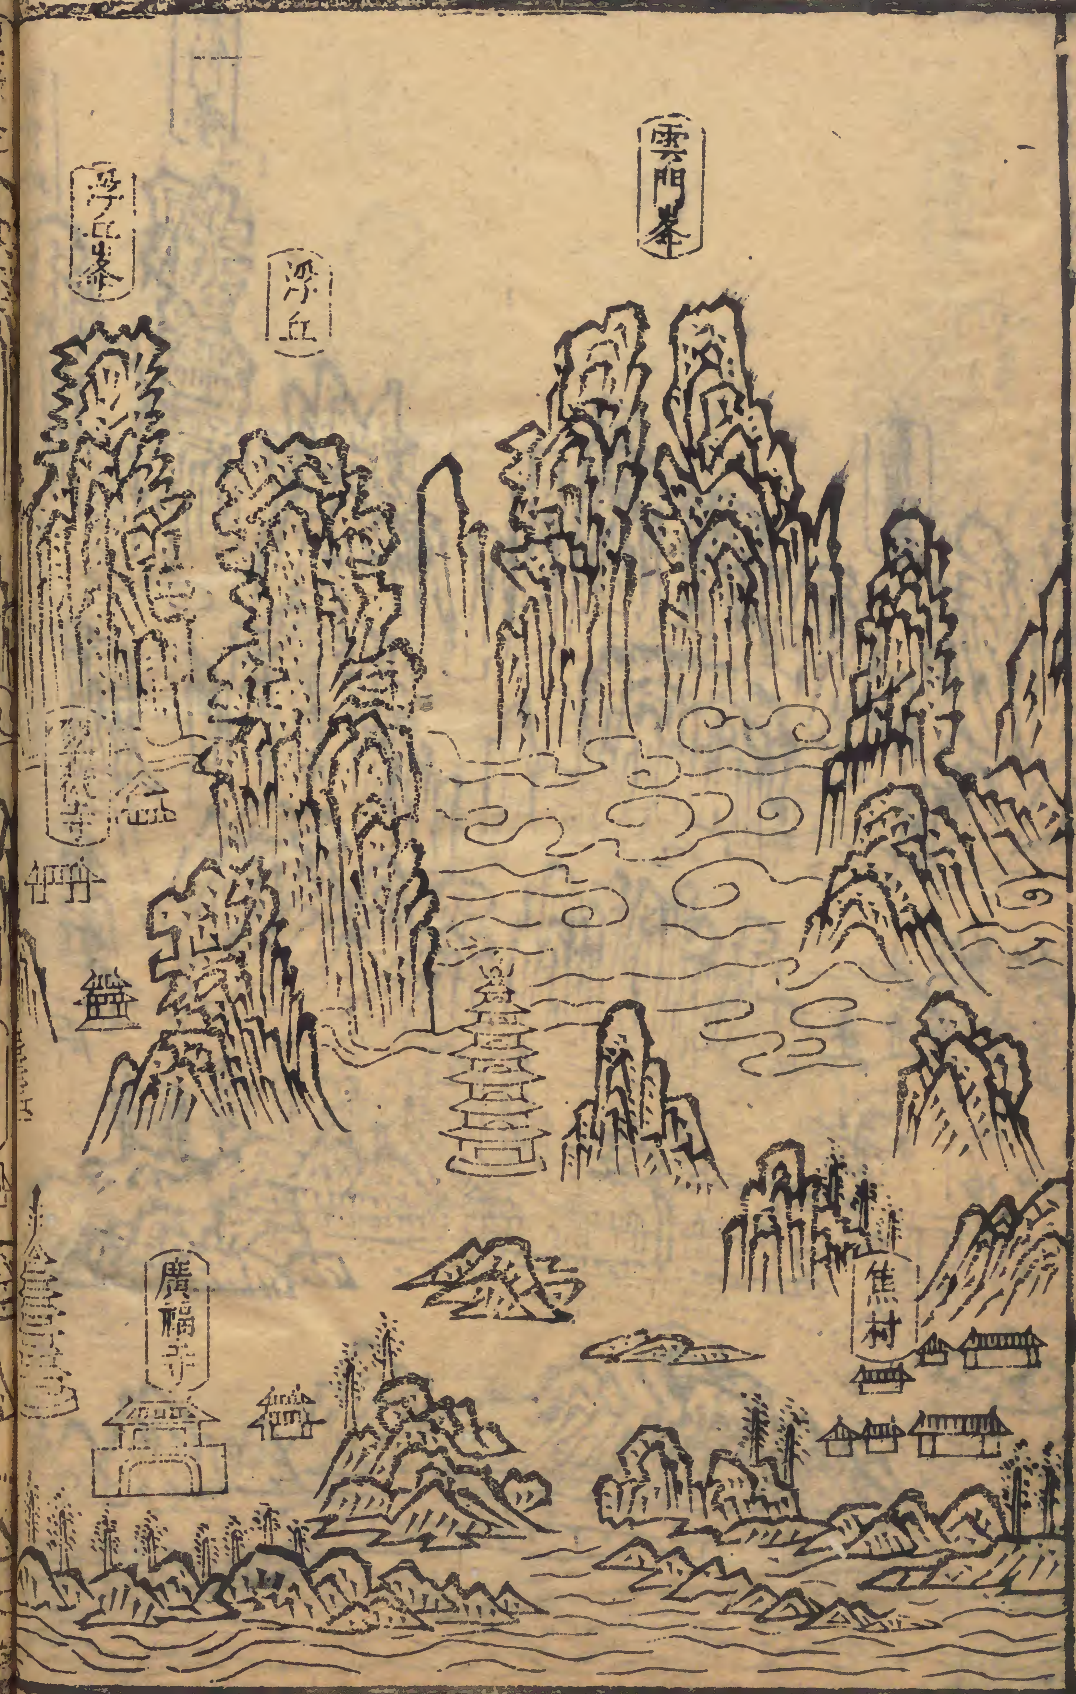 雲門峯
浮丘
浮丘峯
焦村
廣福寺